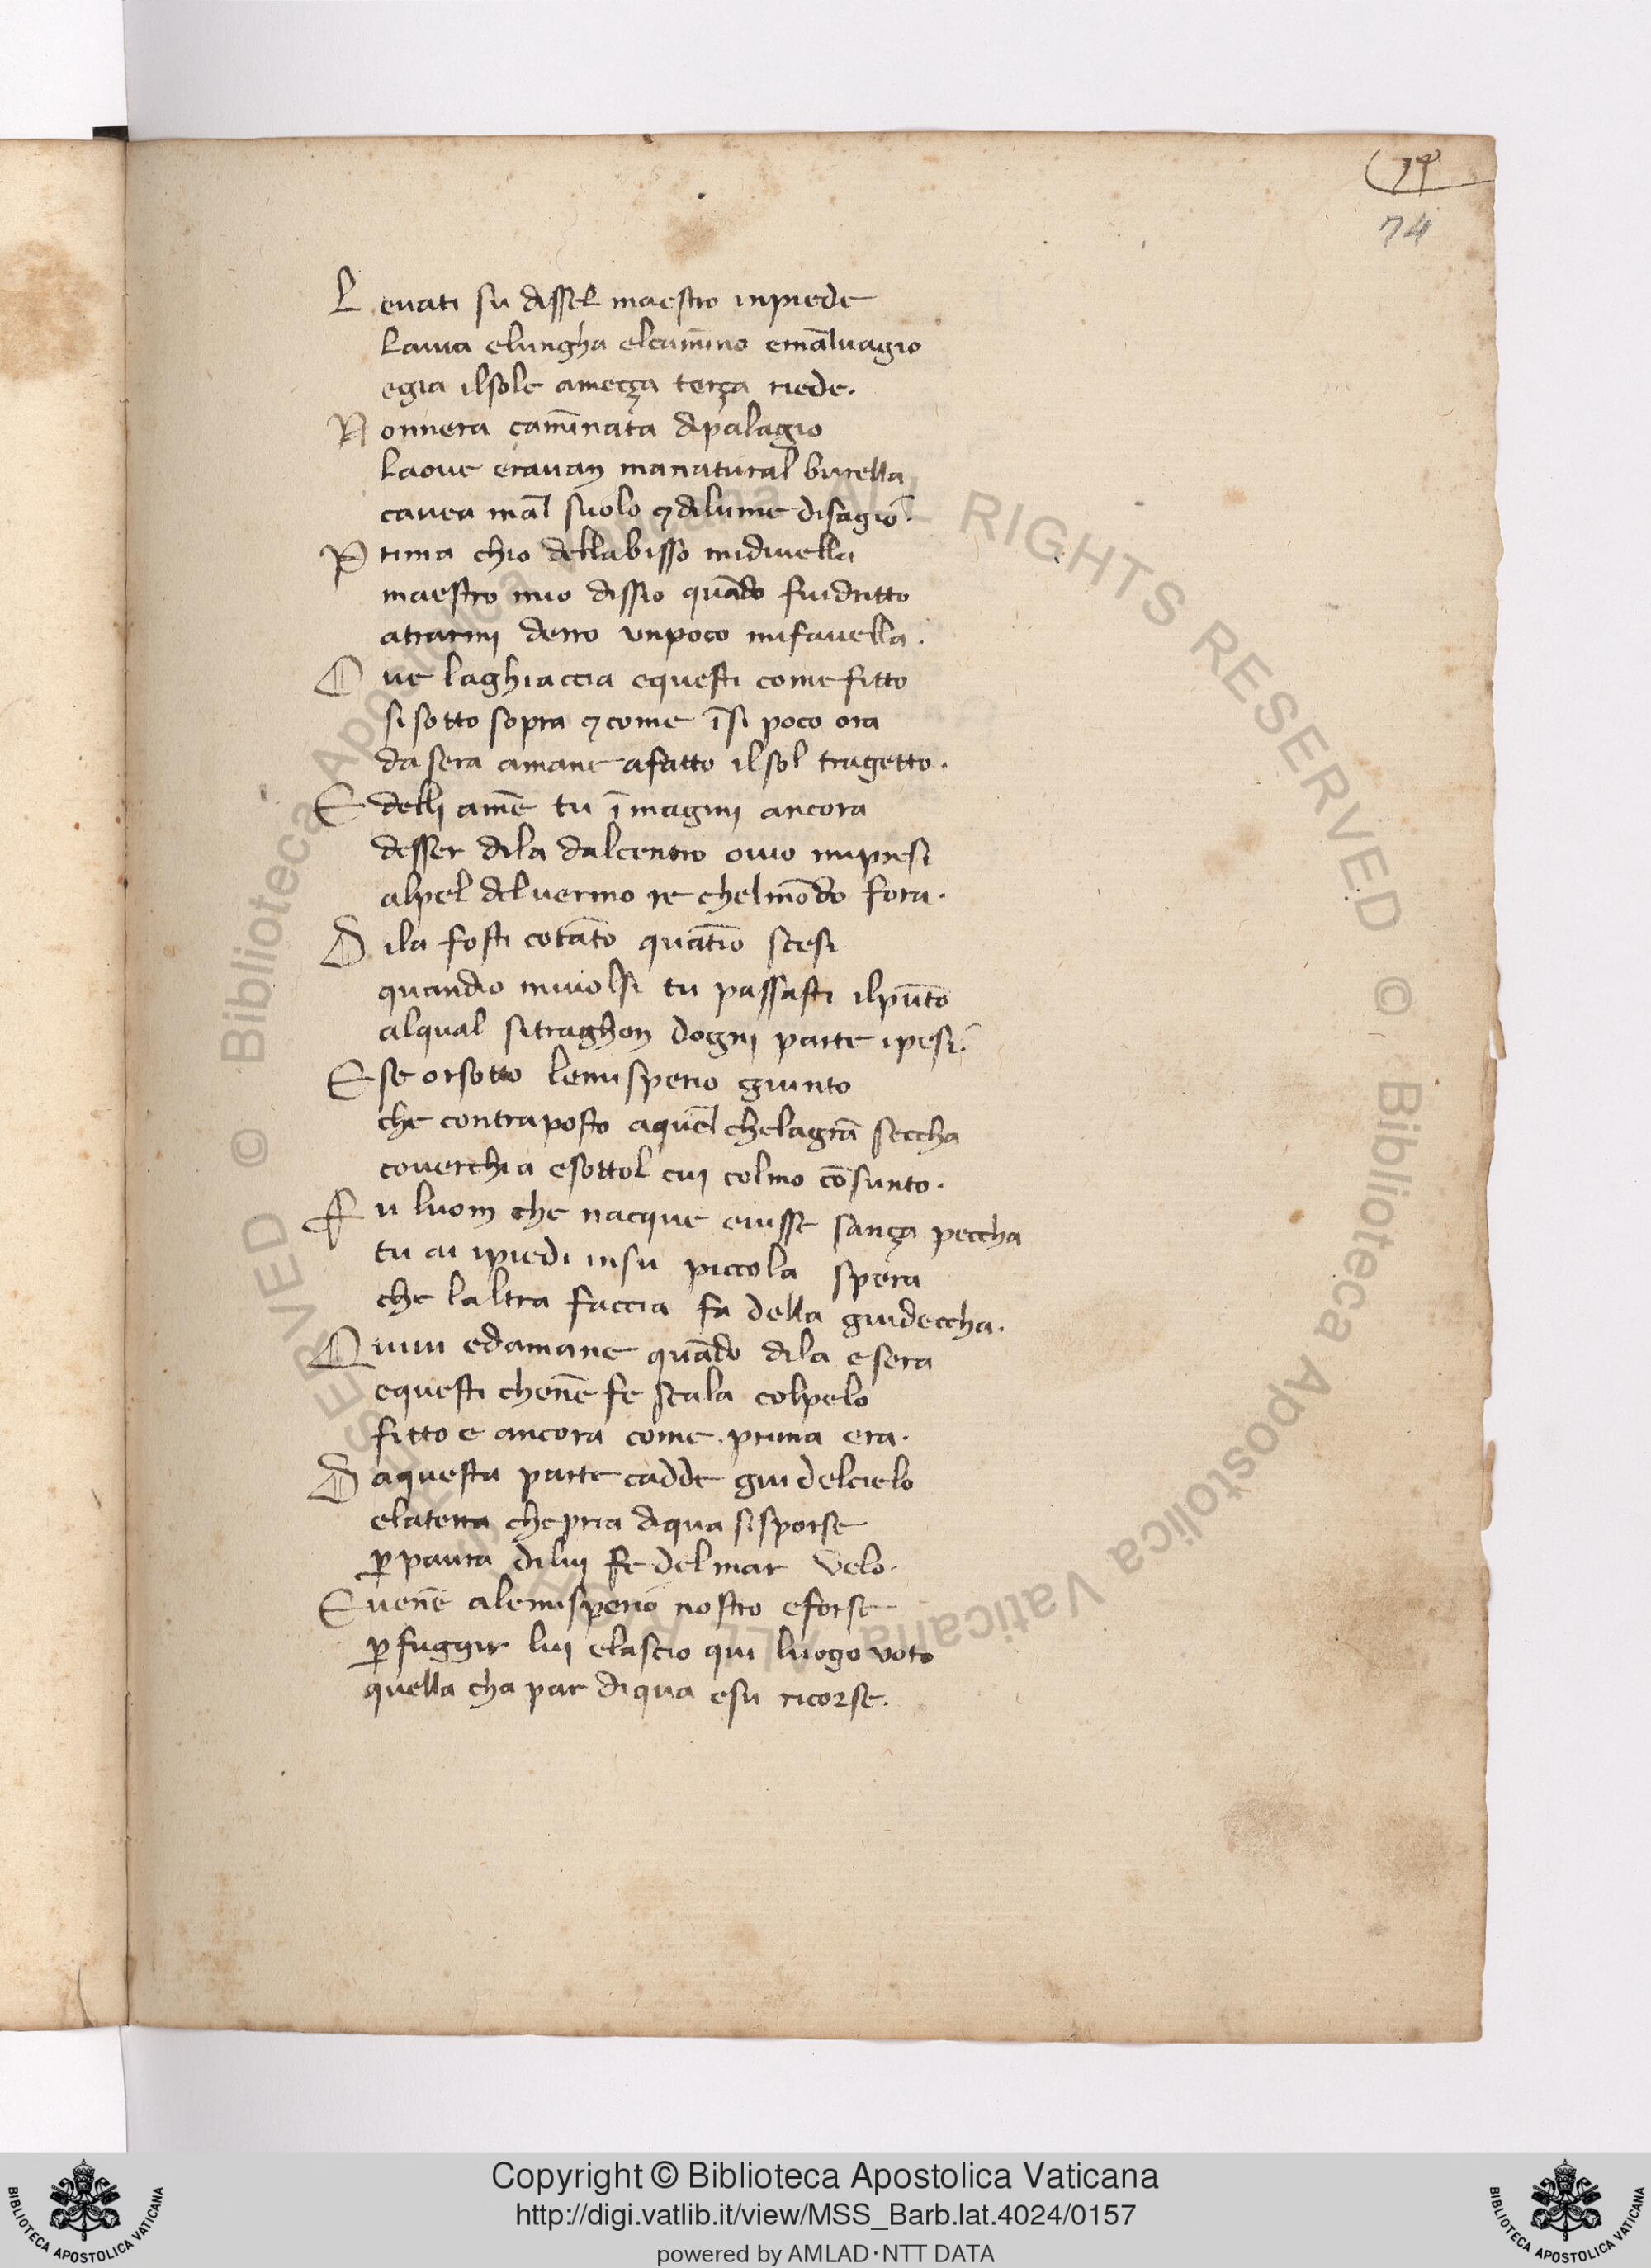 79
74
L evati su dissel maestro inpiede
Lavia elungha elcam̄ino emāluagio
egia ilsole ameçça terça riede.
N onnera cam̄inata dipalagio
Laove eravan manatural burella
cavea māl suolo ⁊ dilume disagio.
P rima chio dellabisso midivella
maestro mio dissio quādo fuidritto
atrarmi derro unpoco mifavella.
O ve laghiaccia equesti come fitto
sisotto sopra ⁊ come īsi poco ora
da sera amane afatto il sol tragetto.
E delli amē tu īmagini ancora
desser dila dalcentro ovio mipresi
alpel delvermo re chelmōdo fora.
D ila fosti cotāto quātio scesi
quandio mivolsi tu passasti ilpūto
alqual sitraghon dogni parte ipesi.
E se orsotto lemisperio giunto
che contraposto aquēl chelagrā seccha
coverchia esottol cui colmo cōsunto.
F u luom che nacque evisse sança peccha
tu ai ipiedi insu piccola spera
che laltra faccia fa della giudeccha.
Q uivi edamane quādo dila esera
equesti chenē fe scala colpelo
fitto e ancora come prima era.
D aquesta parte cadde giu delcielo
elaterra chepria diqua sisporse
ꝑ paura dilui fe del mar velo.
E venē alemisperio nostro eforse
ꝑ fuggir lui elascio qui luogo voto
quella cha par diqua esu ricorse.
© Biblioteca Apostolica Vaticana ALL RIGHTS RESERVED © Biblioteca Apostolica Vaticana ALL RIGHTS RESERVED
Copyright © Biblioteca Apostolica Vaticana
http://digi.vatlib.it/view/MSS_Barb.lat.4024/0157
powered by AMLAD·NTT DATA
BIBLIOTECA APOSTOLICA VATICANA
BIBLIOTECA APOSTOLICA VATICANA